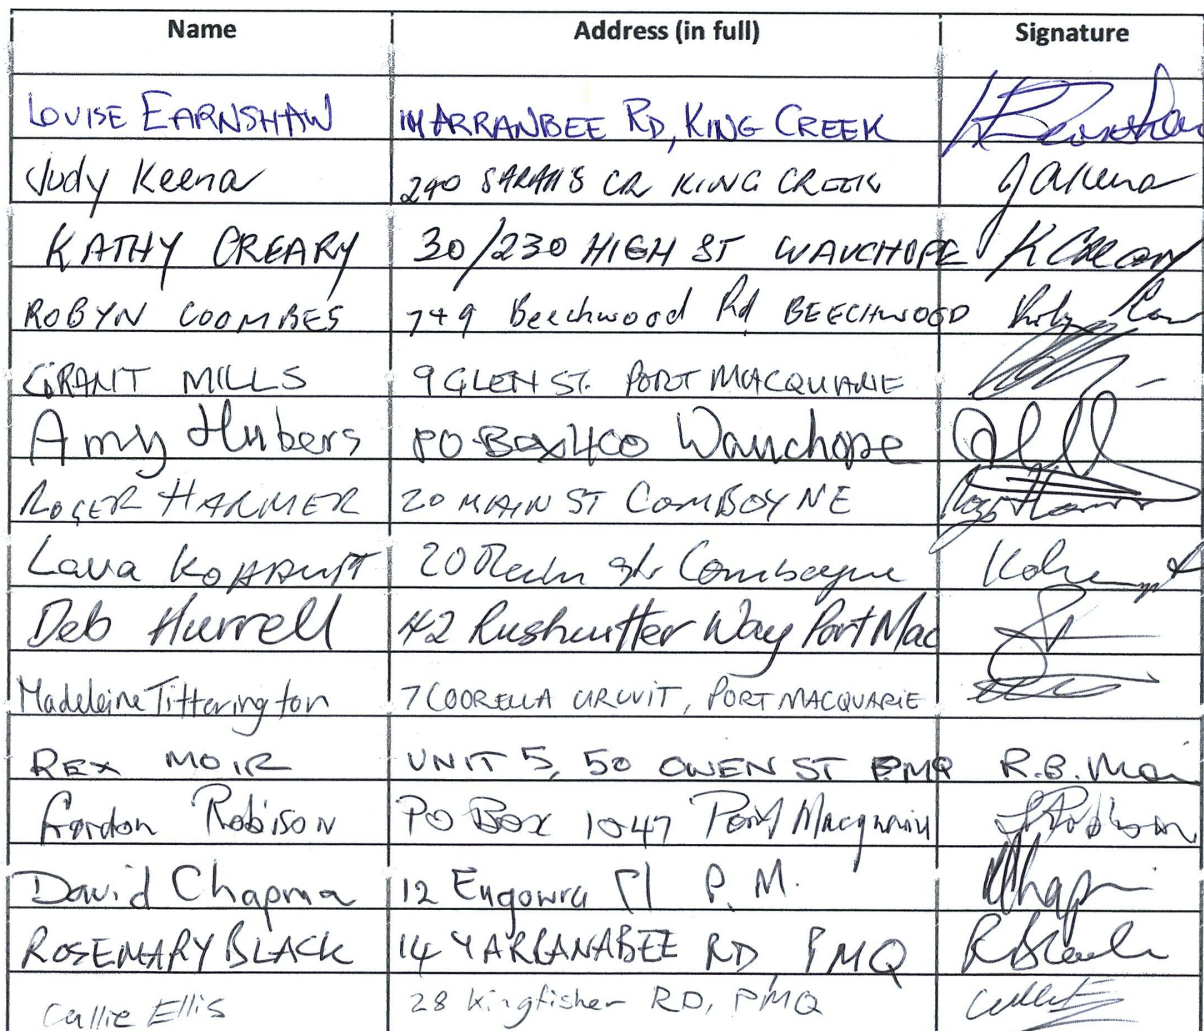 Name Address (in full) Signature
LOUISE EARNSHAW ARRANBEE RD, KING CREEK
Judy Keena 290 SARAHS CR KING CREEK
KATHY CREARY 30/230 HIGH ST WAUCHOPE K Creary
ROBYN COOMBES 749 Beechwood Rd BEECHWOOD
GRANT MILLS 9 GLEN ST. PORT MACQUARIE
Amy Hubers PO Box 400 Wauchope
ROGER HARMER 20 MAIN ST COMBOYNE
Lana 20 Comboyne
Deb Hurrell 42 Rushcutter Way Port Mac
Madeleine Titterington 7 COORELLA CIRCUIT, PORT MACQUARIE
REX MOIR UNIT 5, 50 OWEN ST PMQ R.B. Moir
Gordon Robison PO Box 1047 Port Macquarie
David Chapma 12 Engowra Pl P.M.
ROSEMARY BLACK 14 YARRANABEE RD PMQ R Black
Callie Ellis 28 Kingfisher RD, PMQ